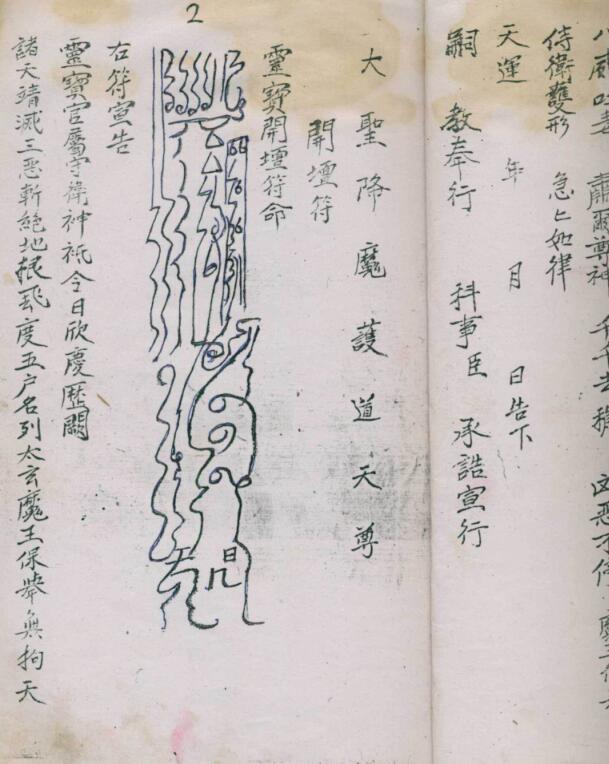 侍衛護形 急〻如律
天運 年 月 日告下
嗣 教奉行 科事臣 承誥宣行
大聖降魔護道天尊
開壇符
靈寶開壇符命
2
右符宣告
靈寶官屬守衛神祇令日欣慶歷關
諸天靖滅三惡斬絕地根飛度五户名列太玄魔王保舉無拘天